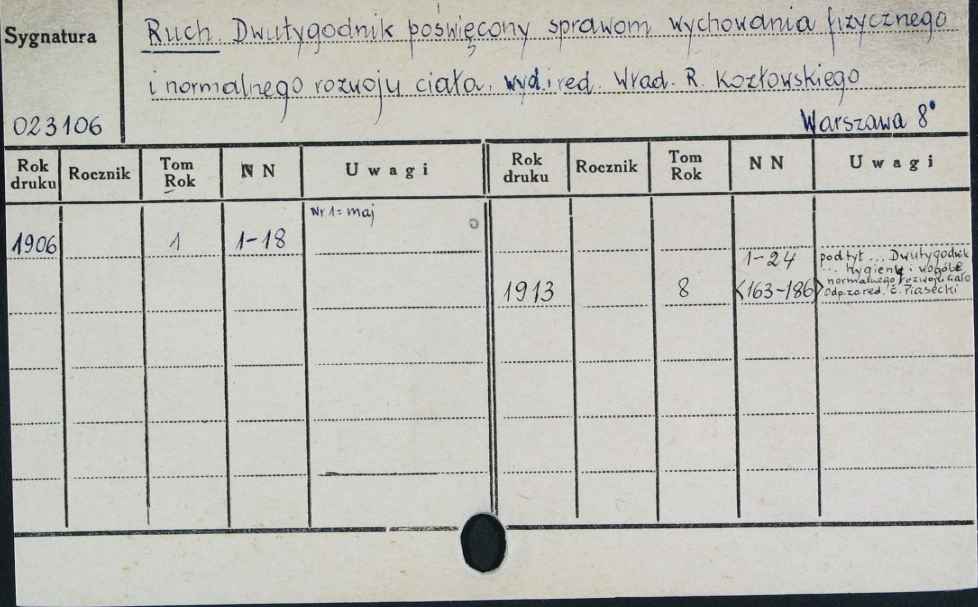 Sygnatura
Ruch. Dwutygodnik poświęcony sprawom wychowania fizycznego
i normalnego rozwoju ciała, wyd. i red. Wład. R. Kozłowskiego
023106
Warszawa 8°
Rok druku Rocznik Tom Rok N N Uwagi Rok druku Rocznik Tom Rok N N Uwagi
Nr 1 = maj
1906 1 1-18
1913 8 1-24 <163-186>
podtyt... Dwutygodnik
... hygienie i wogóle
normalnego rozwoju ciała
Odp. za red. E. Piasecki